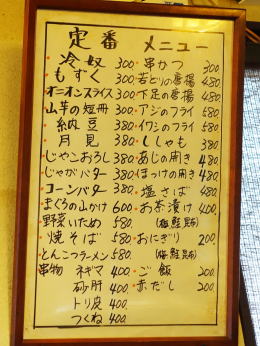 定番 メニュー
冷奴 300
もずく 300
オニオンスライス 300
山芋の短冊 380
納豆 380
月見 380
じゃこおろし 380
じゃがバター 380
コーンバター 380
まぐろの山かけ 600
野菜いため 580
焼そば 580
とんこつラーメン 580
串物 ネギマ 400
砂肝 400
トリ皮 400
つくね 400
串かつ 300
若どりの唐揚 480
下足の唐揚 480
アジのフライ 580
イワシのフライ 580
ししゃも 380
あじの開き 480
ほっけの開き 480
塩さば 480
お茶漬け 400
(梅 鮭 昆布)
おにぎり 200
(梅 鮭 昆布)
ご飯 200
赤だし 200